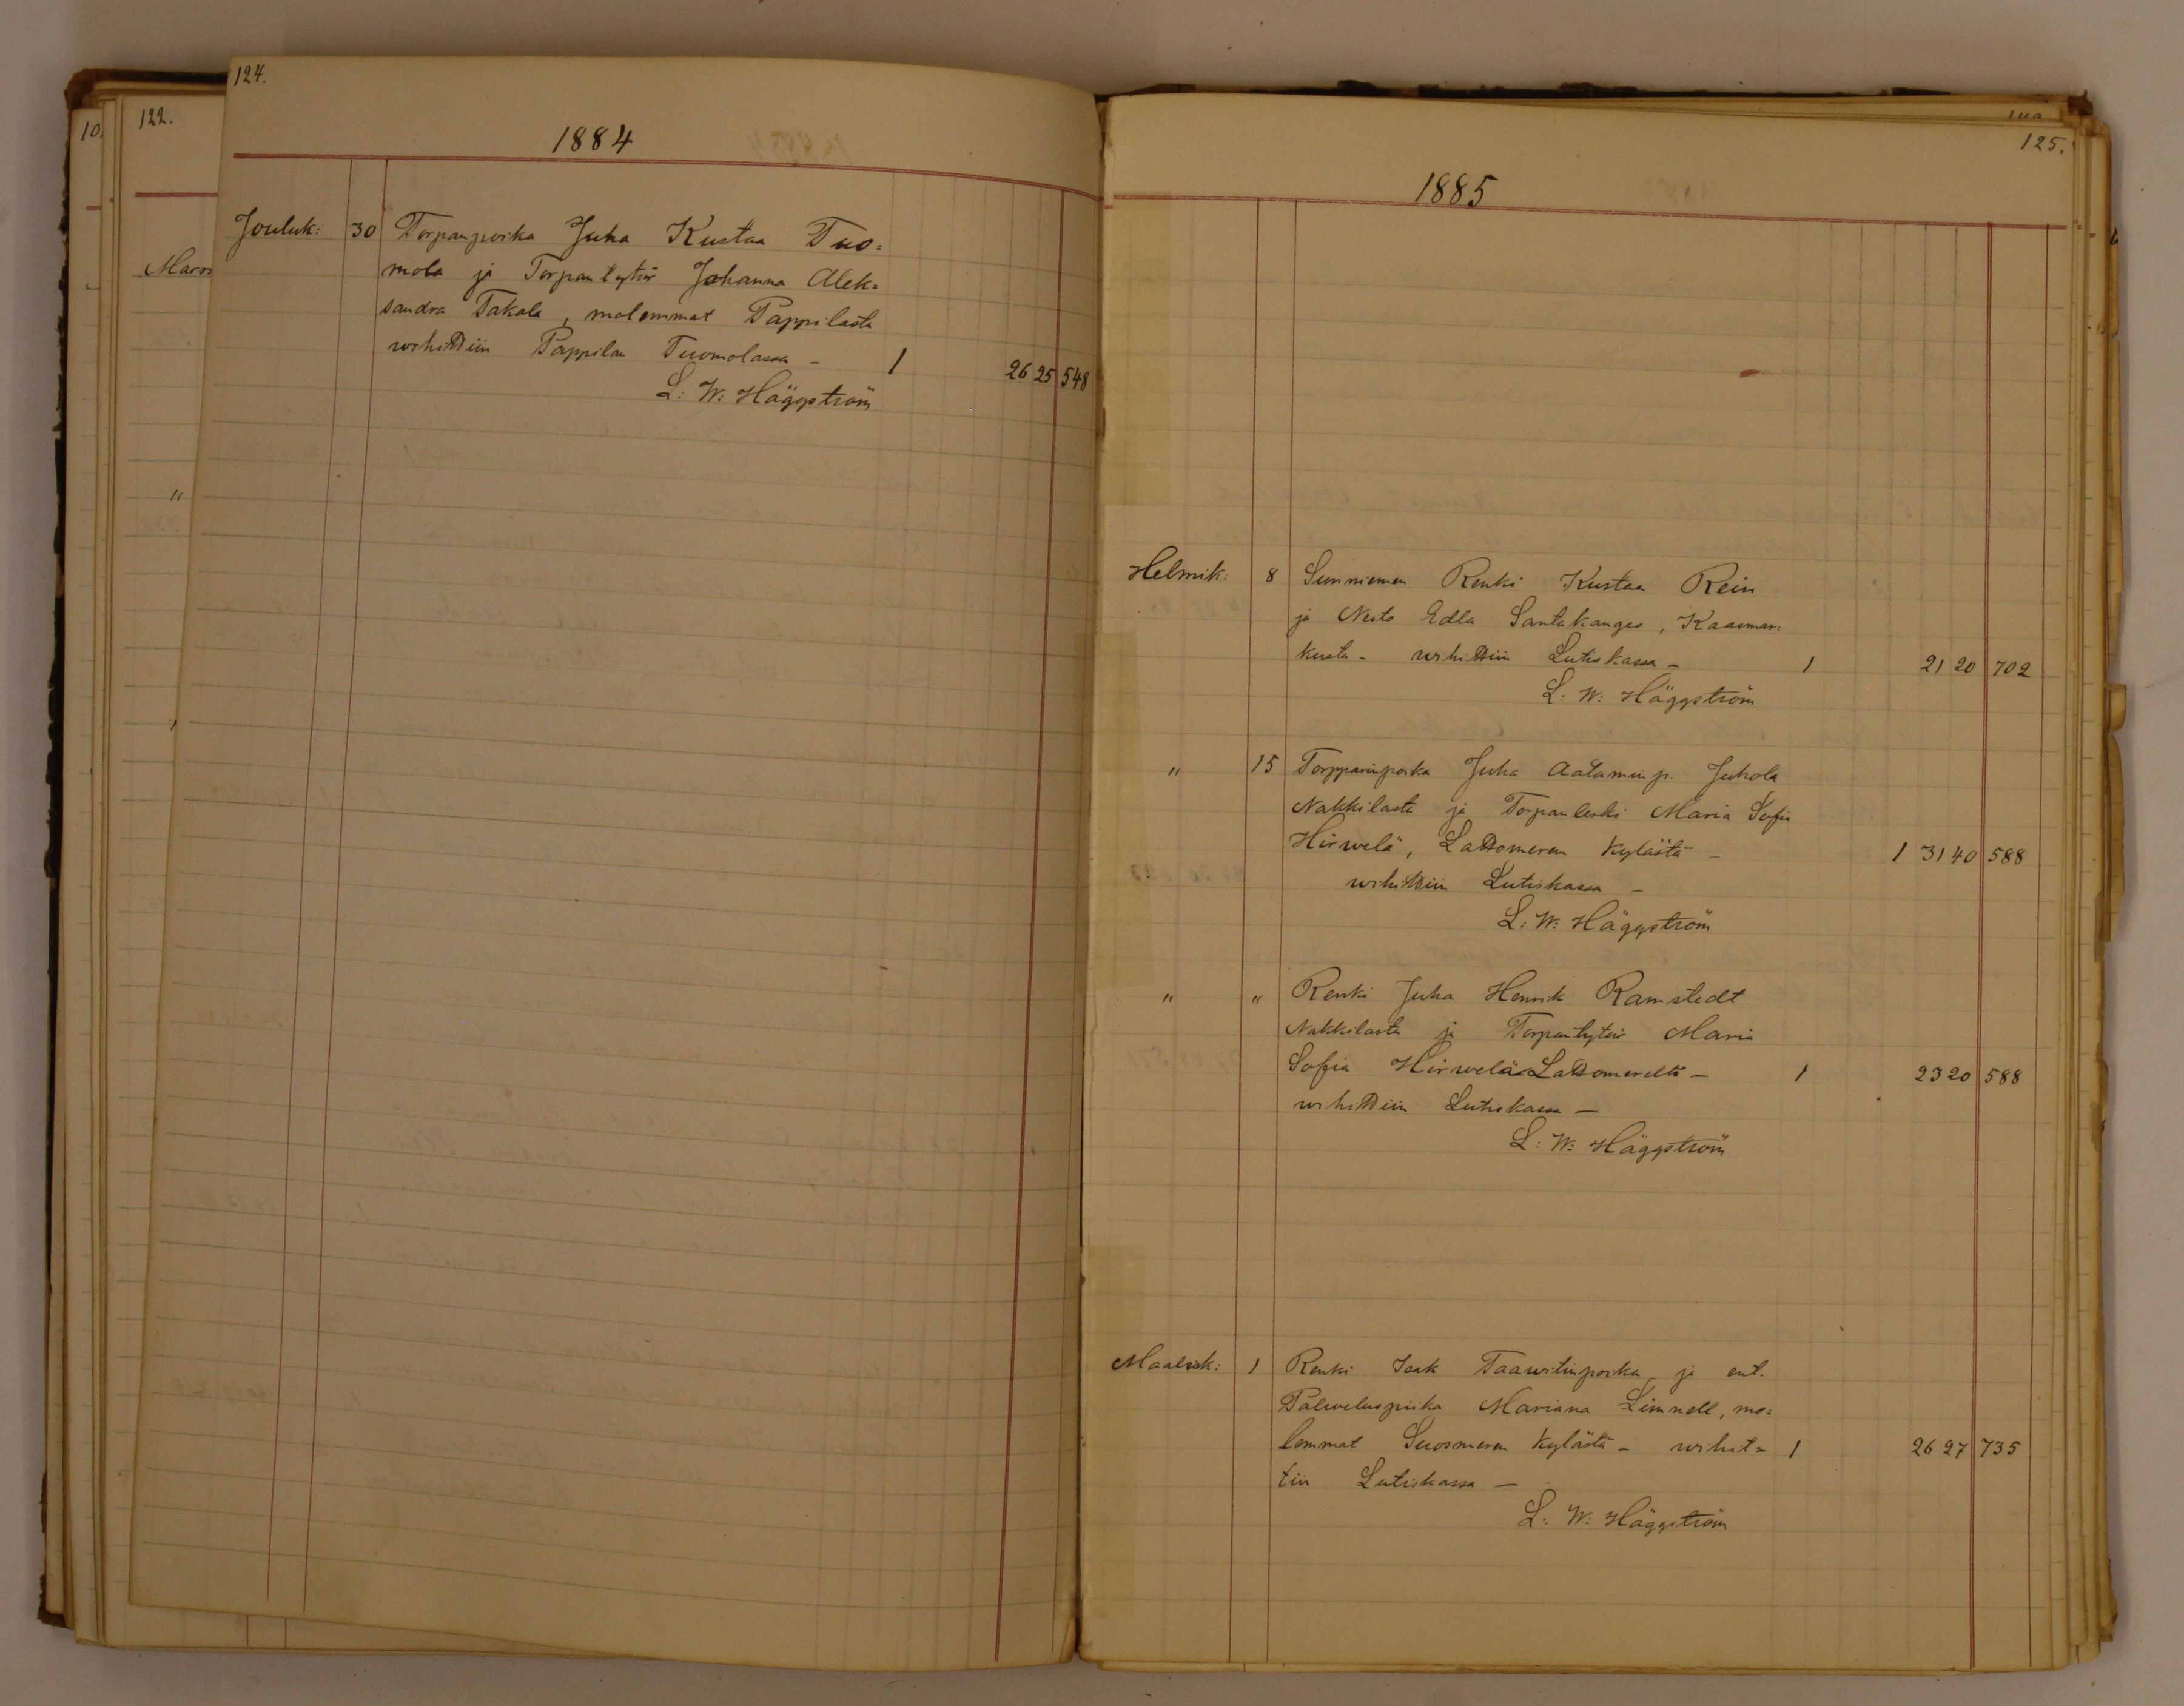 10.
122.
Maros
"
124.
1884
Jouluk: 30 Torpanpoika Juha Kustaa Tuo=
mola ja Torpantytär Johanna Alek=
sandra Takala, molemmat Pappilasta
wihittiin Pappilan Tuomolassa – 1 26 25 548
L: W: Häggström
125.
1885
Helmik: 8 Sunniemen Renki Kustaa Rein
ja Neito Edla Santakangas, Kaasmar=
kusta – wihittiin Lutiskassa – 1 21 20 702
L: W: Häggström
" 15 Torpparinpoika Juha Aatamin p. Juhola
Nakkilasta ja Torpanleski Maria Sofia
Hirwelä, Lattomeren kylästä – 1 31 40 588
wihittiin Lutiskassa –
L: W: Häggström
" " Renki Juha Henrik Ramstedt
Nakkilasta ja Torpantytär Maria
Sofia Hirwelä Lattomereltä – 1 23 20 588
wihittiin Lutiskassa –
L: W: Häggström
Maalisk: 1 Renki Isak Taawitinpoika ja ent.
Palweluspiika Mariana Limnell, mo=
lemmat Suosmeren kylästä – wihit= 1 26 27 735
tiin Lutiskassa –
L: W: Häggström